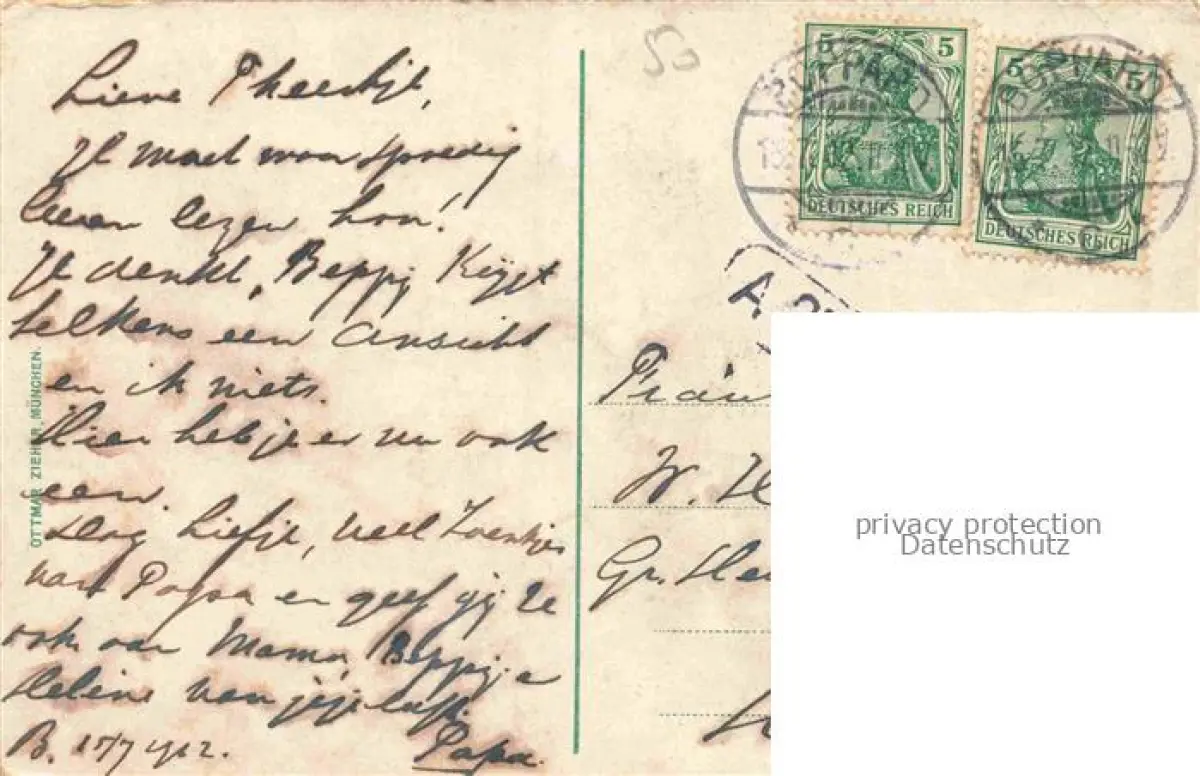 Lieve Theertje,
Je moet maar spoedig
leeren lezen hoor!
Je denkt, Beppy Krijgt
telkens een Ansicht
en ik niets.
Hier heb je er nu ook
een.
Dag Liefje, veel Zoentjes
van Papa en geef jij ze
ook aan Mama, Beppy, e
Helena van
B. 15/7 1912.
Papa.
OTTMAR ZIEHER, MÜNCHEN.
50
5 5
DEUTSCHES REICH
5 5
DEUTSCHES REICH
BOPPARD
BOPPARD
Fräu
W. H
Gr. He
privacy protection
Datenschutz